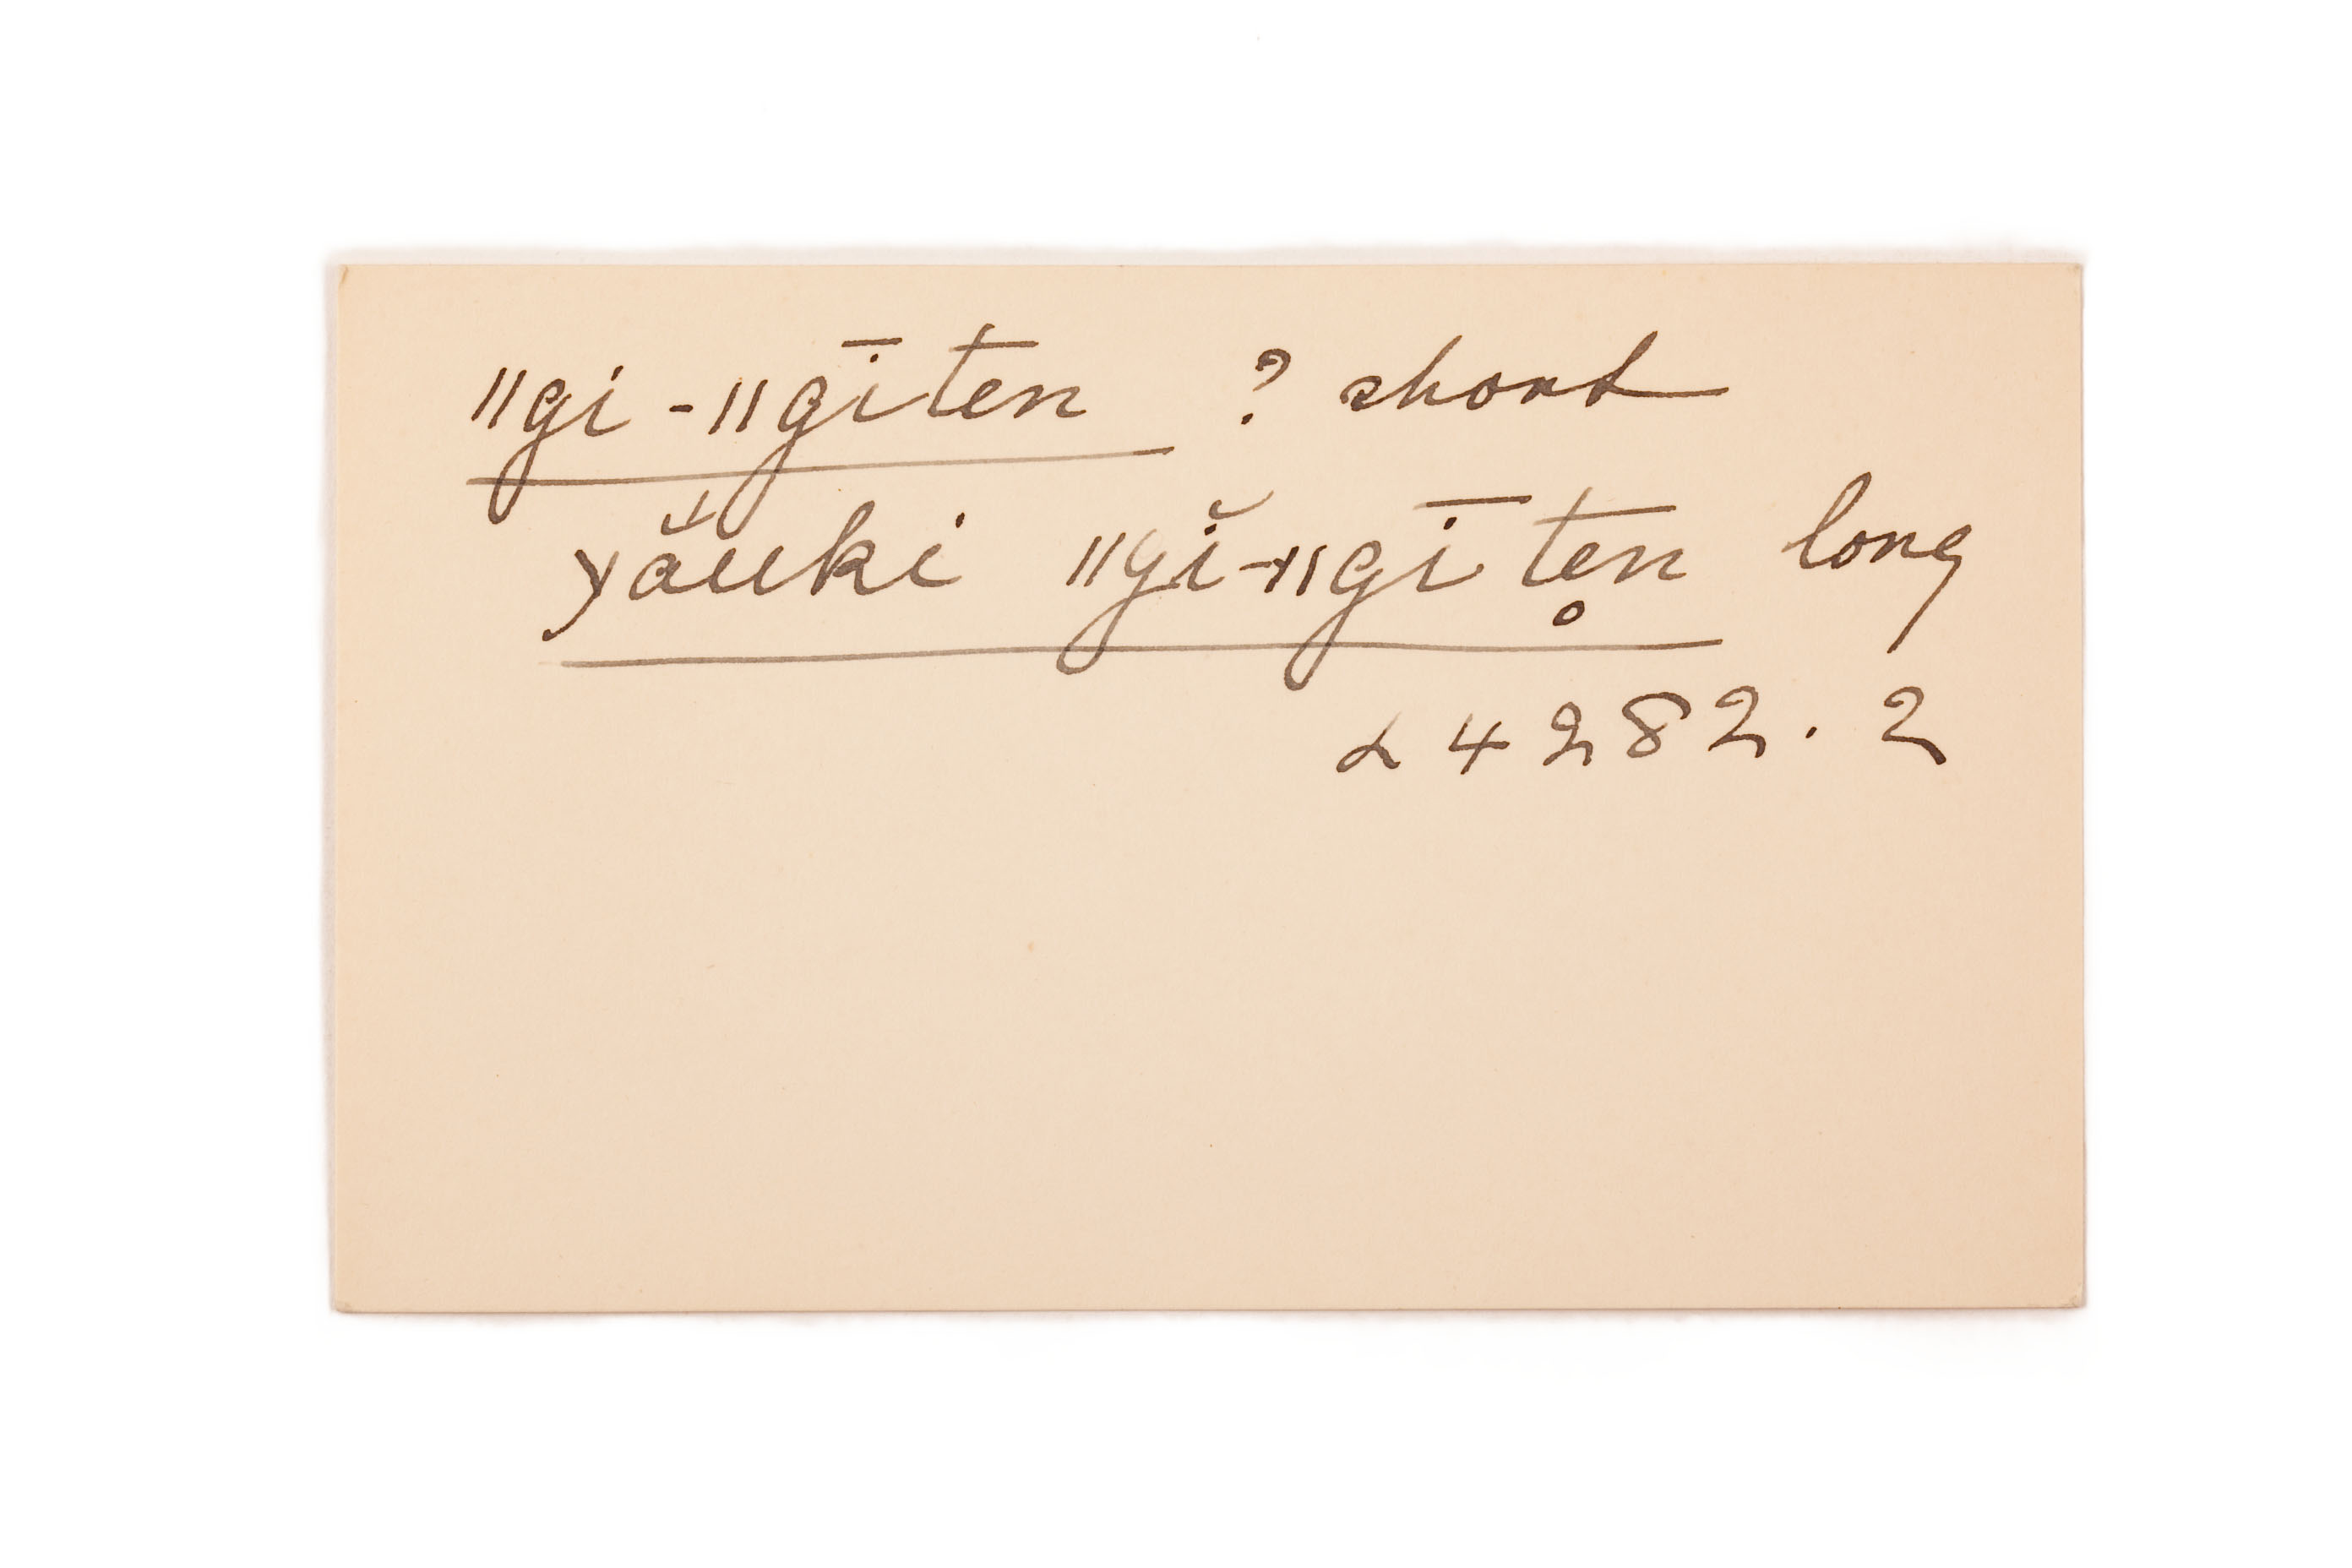 ǁgi-ǁgīten ? short
χắuki ǁgĭ-ǁgīte̥n long
L 4282. 2